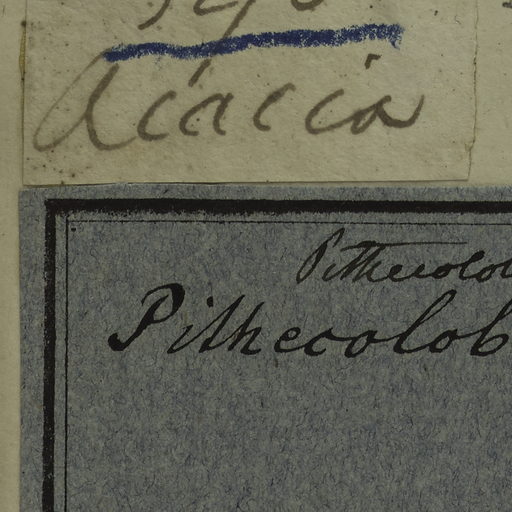 Acacia
Pithecolob
Pithecolob